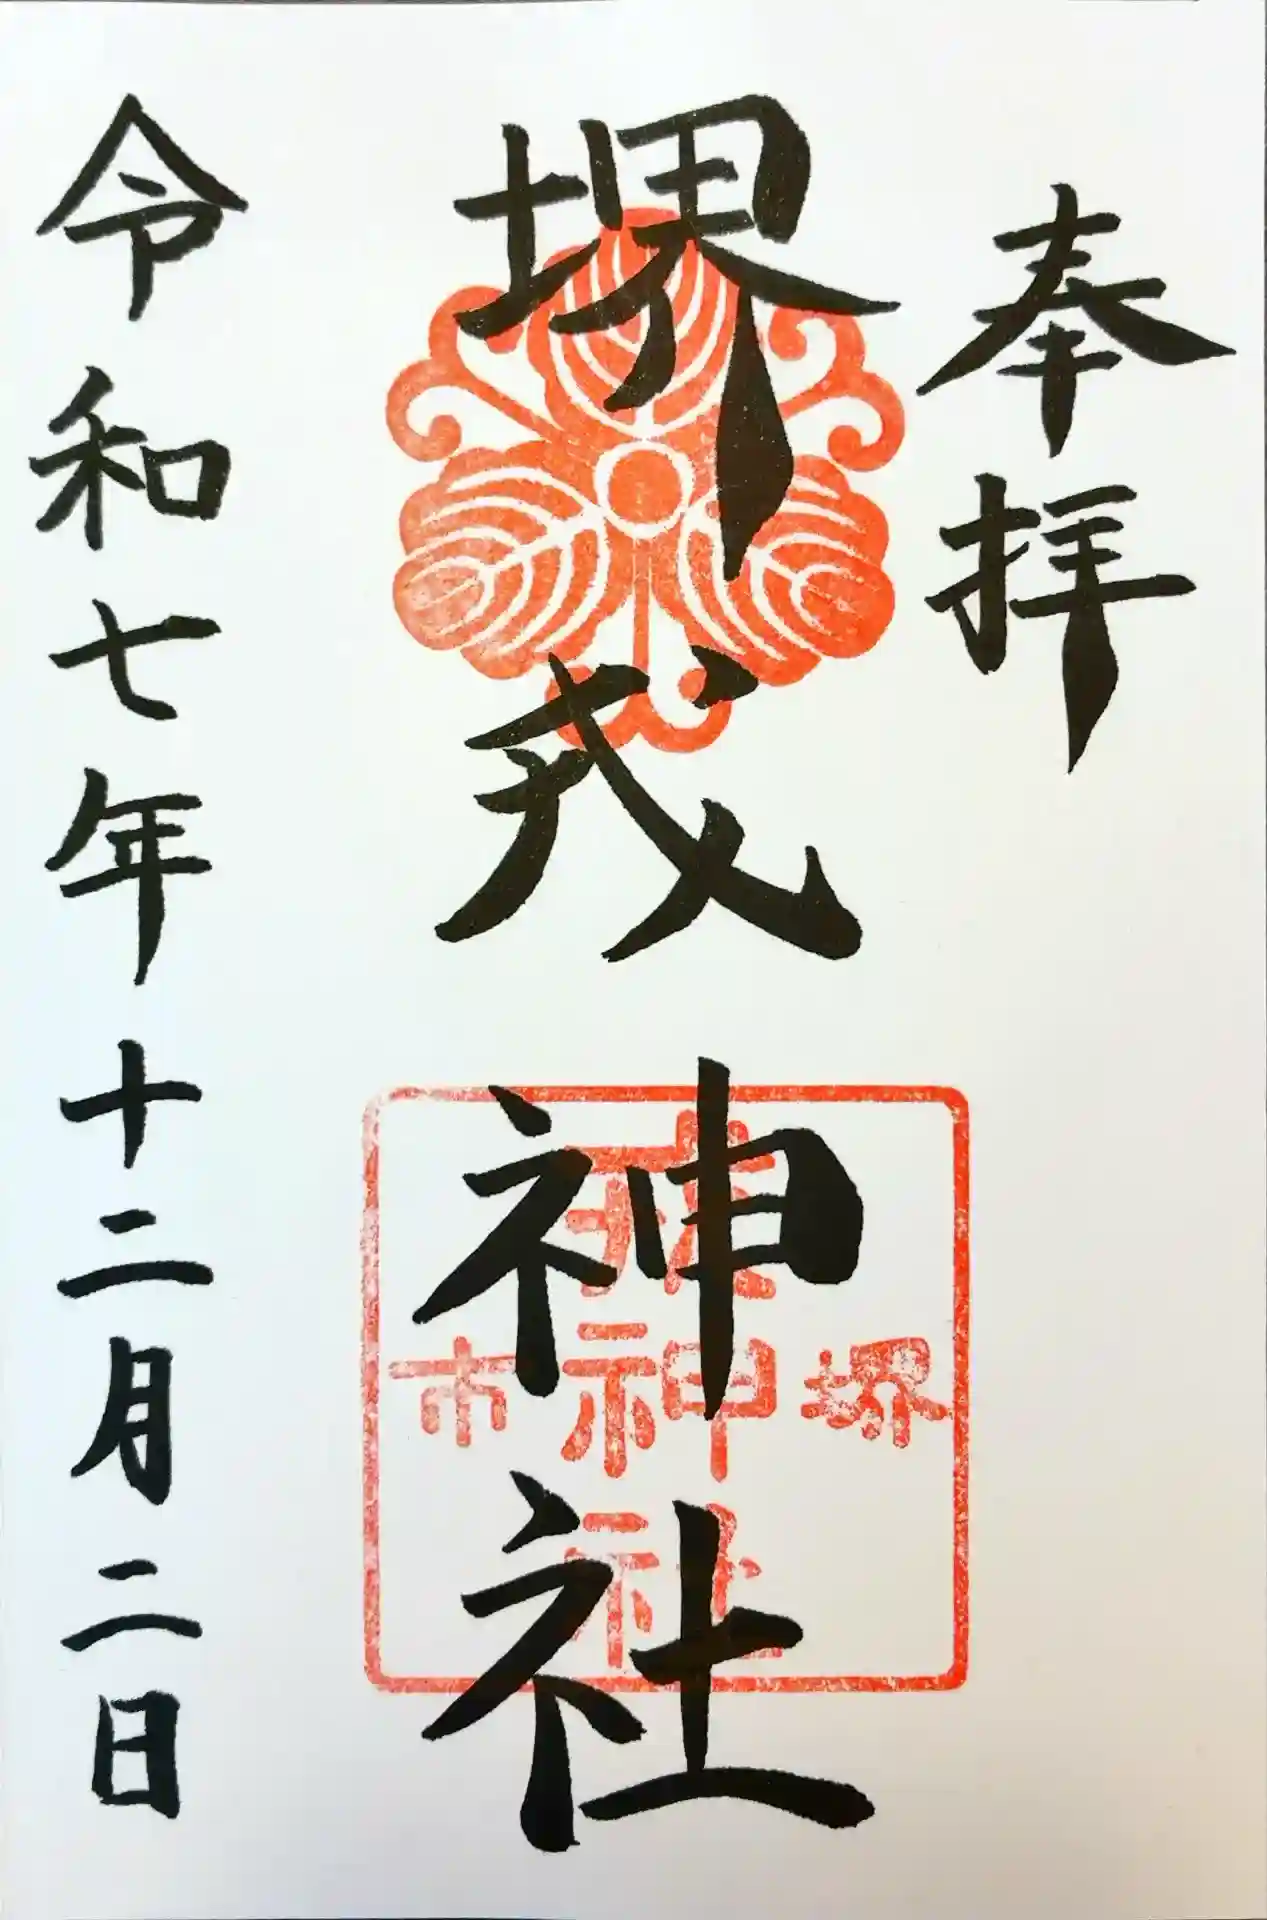 奉拝
堺戎神社
堺市
戎神社
令和七年十二月二日